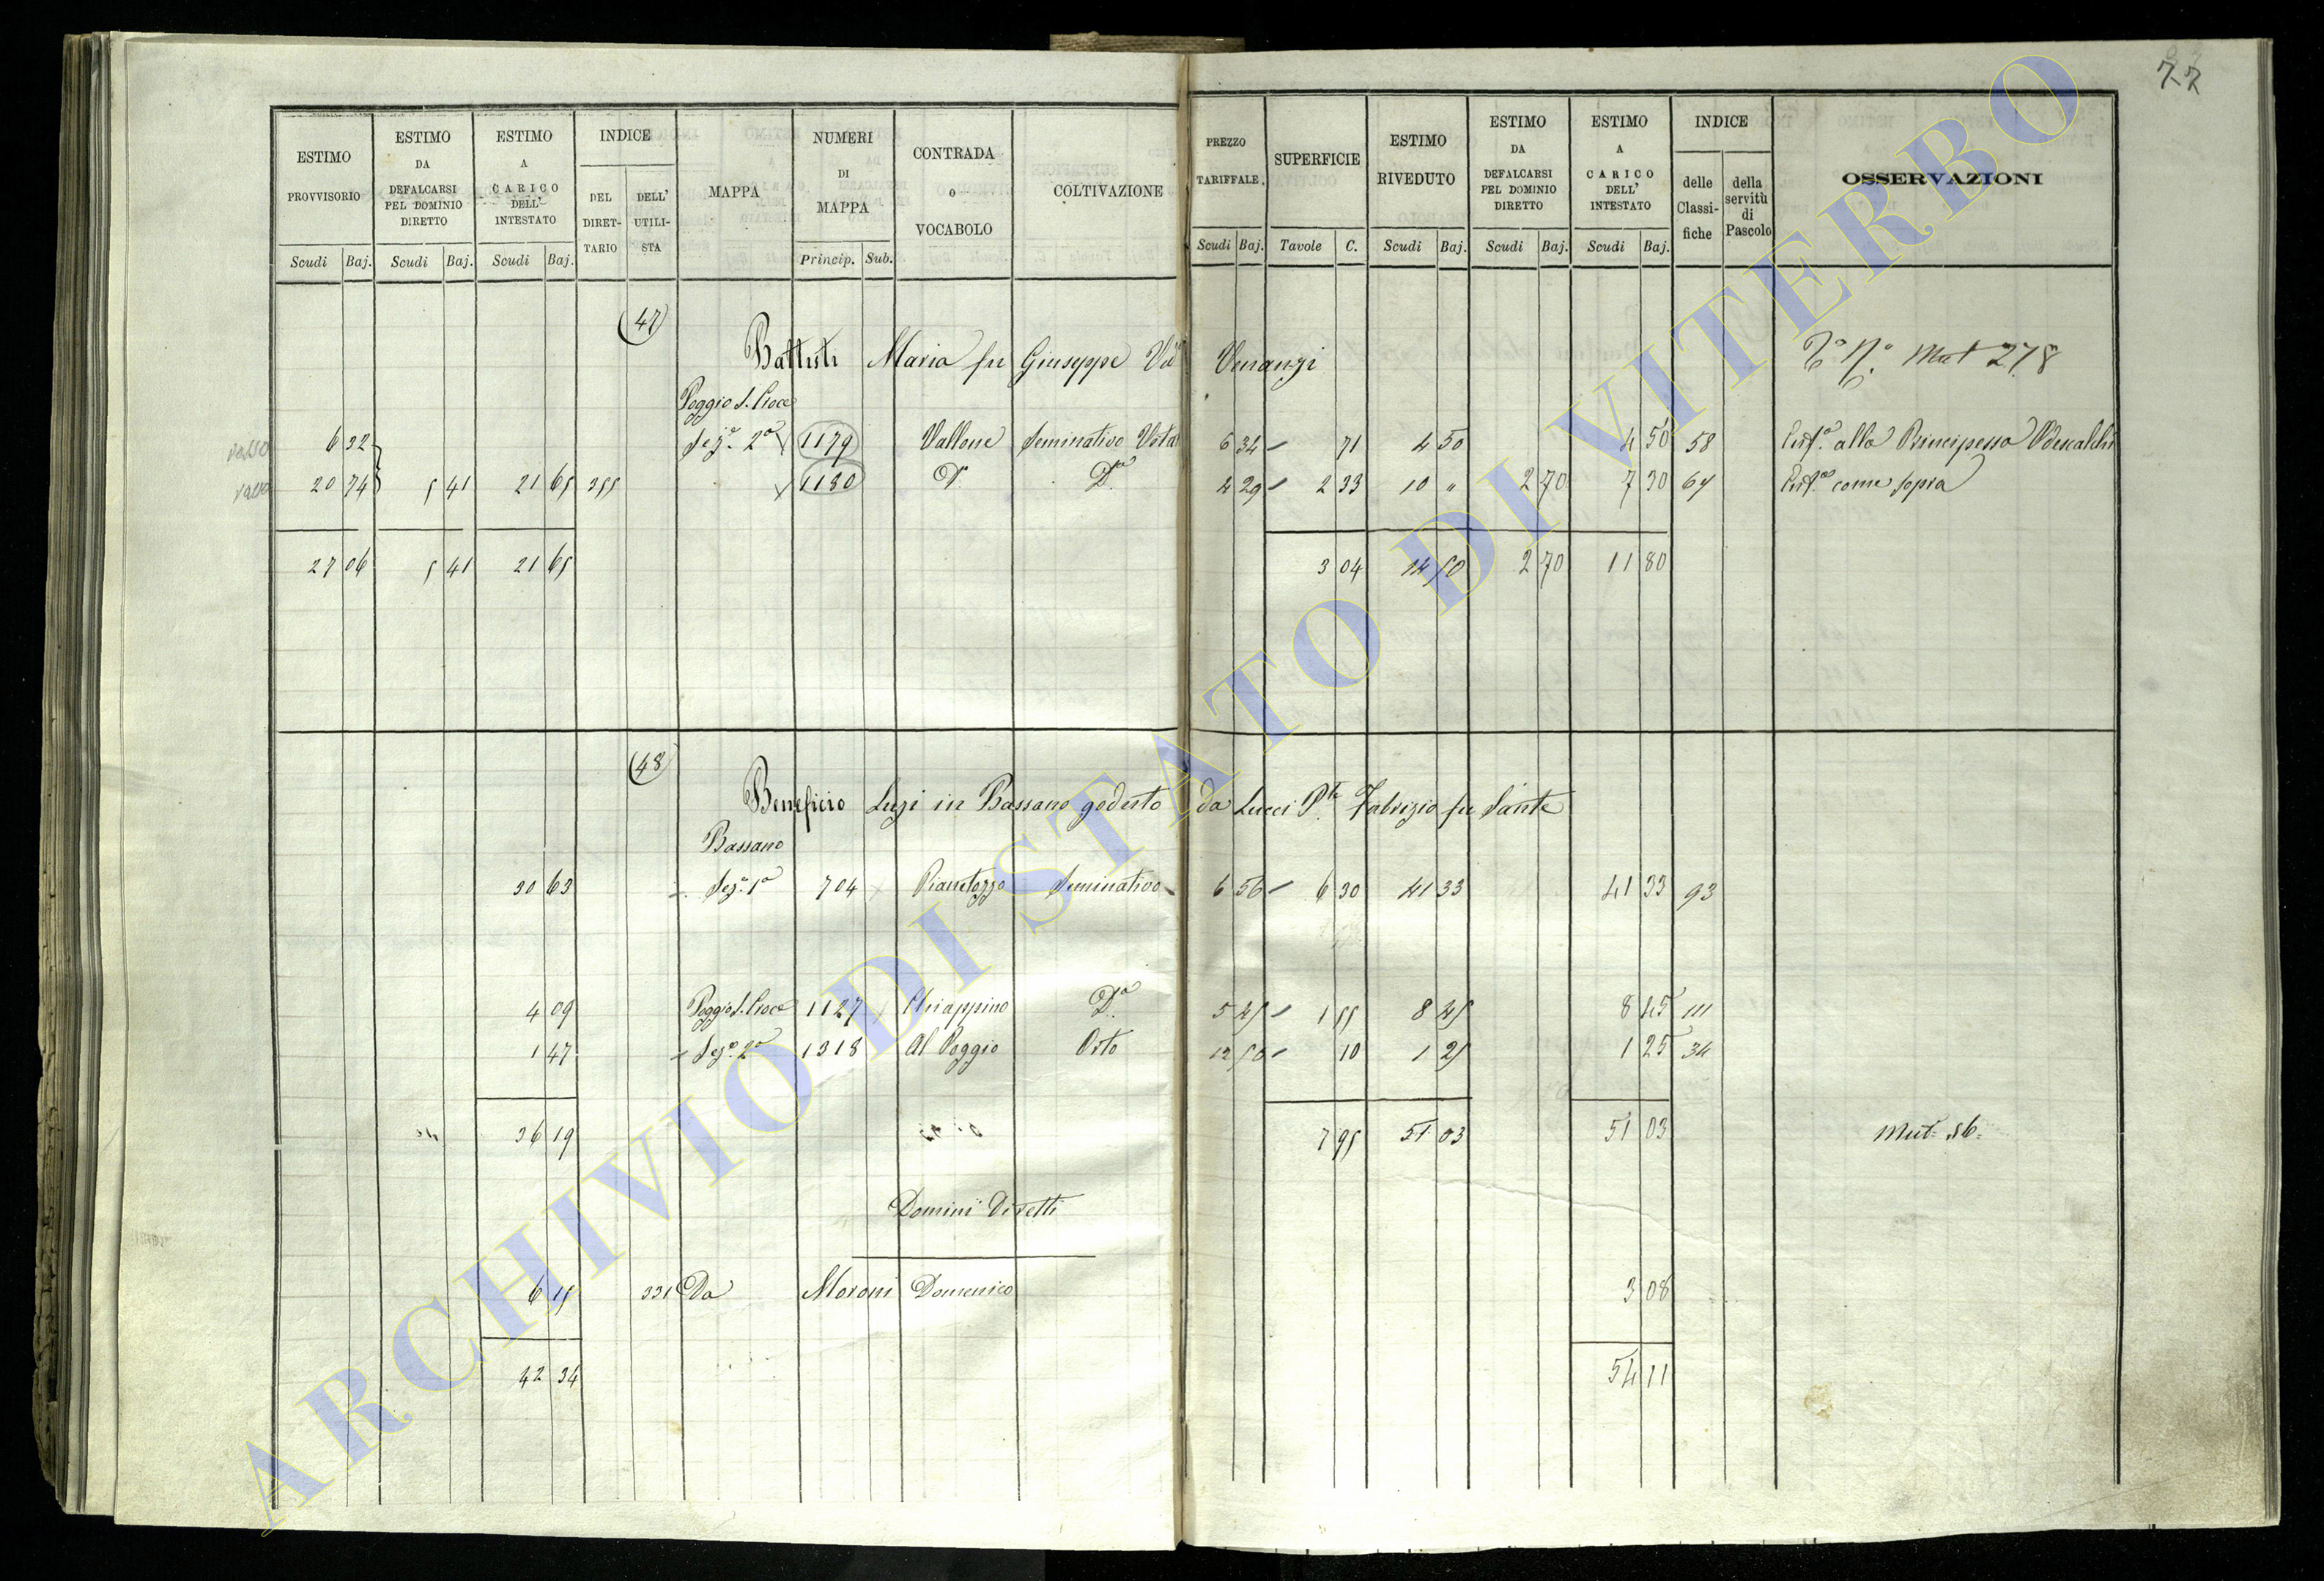 77
ESTIMO PROVVISORIO
ESTIMO DA DEFALCARSI PEL DOMINIO DIRETTO
ESTIMO A CARICO DELL' INTESTATO
INDICE
DEL DIRETTARIO
DELL' UTILISTA
MAPPA
NUMERI DI MAPPA
CONTRADA o VOCABOLO
COLTIVAZIONE
PREZZO TARIFFALE
SUPERFICIE
ESTIMO RIVEDUTO
ESTIMO DA DEFALCARSI PEL DOMINIO DIRETTO
ESTIMO A CARICO DELL' INTESTATO
INDICE
delle Classifiche
della servitù di Pascolo
OSSERVAZIONI
Scudi Baj. Scudi Baj. Scudi Baj. Princip. Sub. Scudi Baj. Tavole C. Scudi Baj. Scudi Baj. Scudi Baj.
(47)
Battisti Maria fu Giuseppe Vᵃ Venanzi Mut 278
Poggio S. Croce
6 32 Sezᵉ 2ᵃ 1179 Vallone Seminativo Vitᵃ 6 34 71 4 50 4 50 58 Enfᵃ alla Principessa Odescalchi
20 74 5 41 21 65 355 1180 Dᵒ Dᵒ 4 29 2 33 10 " 2 70 7 30 64 Enfᵃ come sopra
27 06 5 41 21 65 3 04 14 50 2 70 11 80
(48)
Beneficio Luzi in Bassano goduto da Lucci Pᵗᵉ Fabrizio fu Sante
Bassano
30 63 Sezᵉ 1ᵃ 704 Pianetozzo Seminativo 6 56 6 30 41 33 41 33 93
4 09 Poggio S. Croce 1127 Chiappino Dᵒ 5 45 1 55 8 45 8 45 111
1 47 Sezᵉ 2ᵃ 1318 Al Poggio Orto 12 50 10 1 25 1 25 34
36 19 7 95 51 03 51 03 Mut. 56
Domini Diretti
6 15 331 Da Moroni Domenico 3 08
42 34 54 11
ARCHIVIO DI STATO DI VITERBO